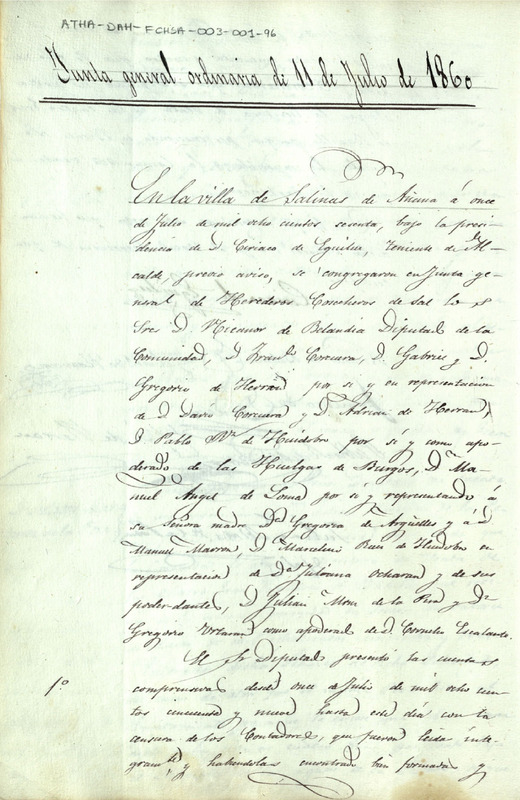 ATHA-DAH-FCHSA-003-001-96
Junta general ordinaria de 11 de Julio de 1860
En la villa de Salinas de Añana á once
de Julio de mil ocho cientos sesenta, bajo la presi-
dencia de D. Ciriaco de Eguiluz, Teniente de Al-
calde, previo aviso, se congregaron en Junta ge-
neral de Herederos Cosecheros de sal los
Sres D. Nicanor de Belandia Diputado de la
Comunidad, D. Franco Corcuera, D. Gabriel y D.
Gregorio de Herran por si y en representacion
de D. Dario Corcuera y D. Adrian de Herran,
D. Pablo Rz de Huidobro por sí y como apo-
derado de las Huelgas de Burgos, D. Ma-
nuel Angel de Soma por sí y representando á
su Señora madre Da Gregoria de Argüelles y á D.
Manuel Marron, D. Marcelino Ruiz de Huidobro en
representacion de Da Juliana Ocharan y de sus
poder-dantes, D. Julian de la Peña y Dn
Gregorio como apoderado de D. Cornelio Escalante.
El Sr Diputado presentó las cuentas
1o comprensivas desde once de Julio de mil ocho cien-
tos cincuenta y nueve hasta este día con la
censura de los Contadores, que fueron leidas inte-
gramte, y habiendolas encontrado bien formadas y